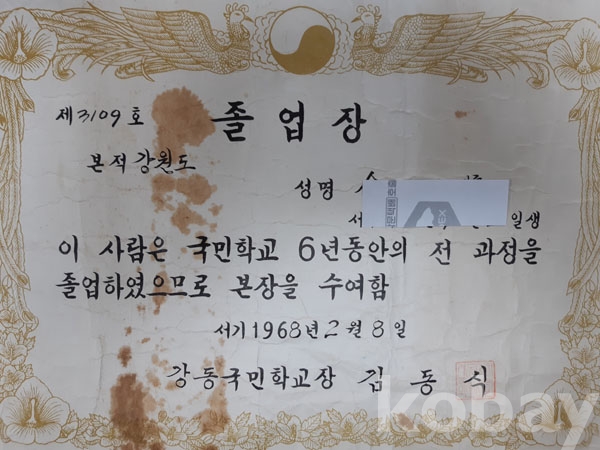 제3109호
졸업장
본적 강원도
성명
서 일생
이 사람은 국민학교 6년동안의 전 과정을
졸업하였으므로 본장을 수여함
서기1968년2월8일
강동국민학교장 김동식
kobay